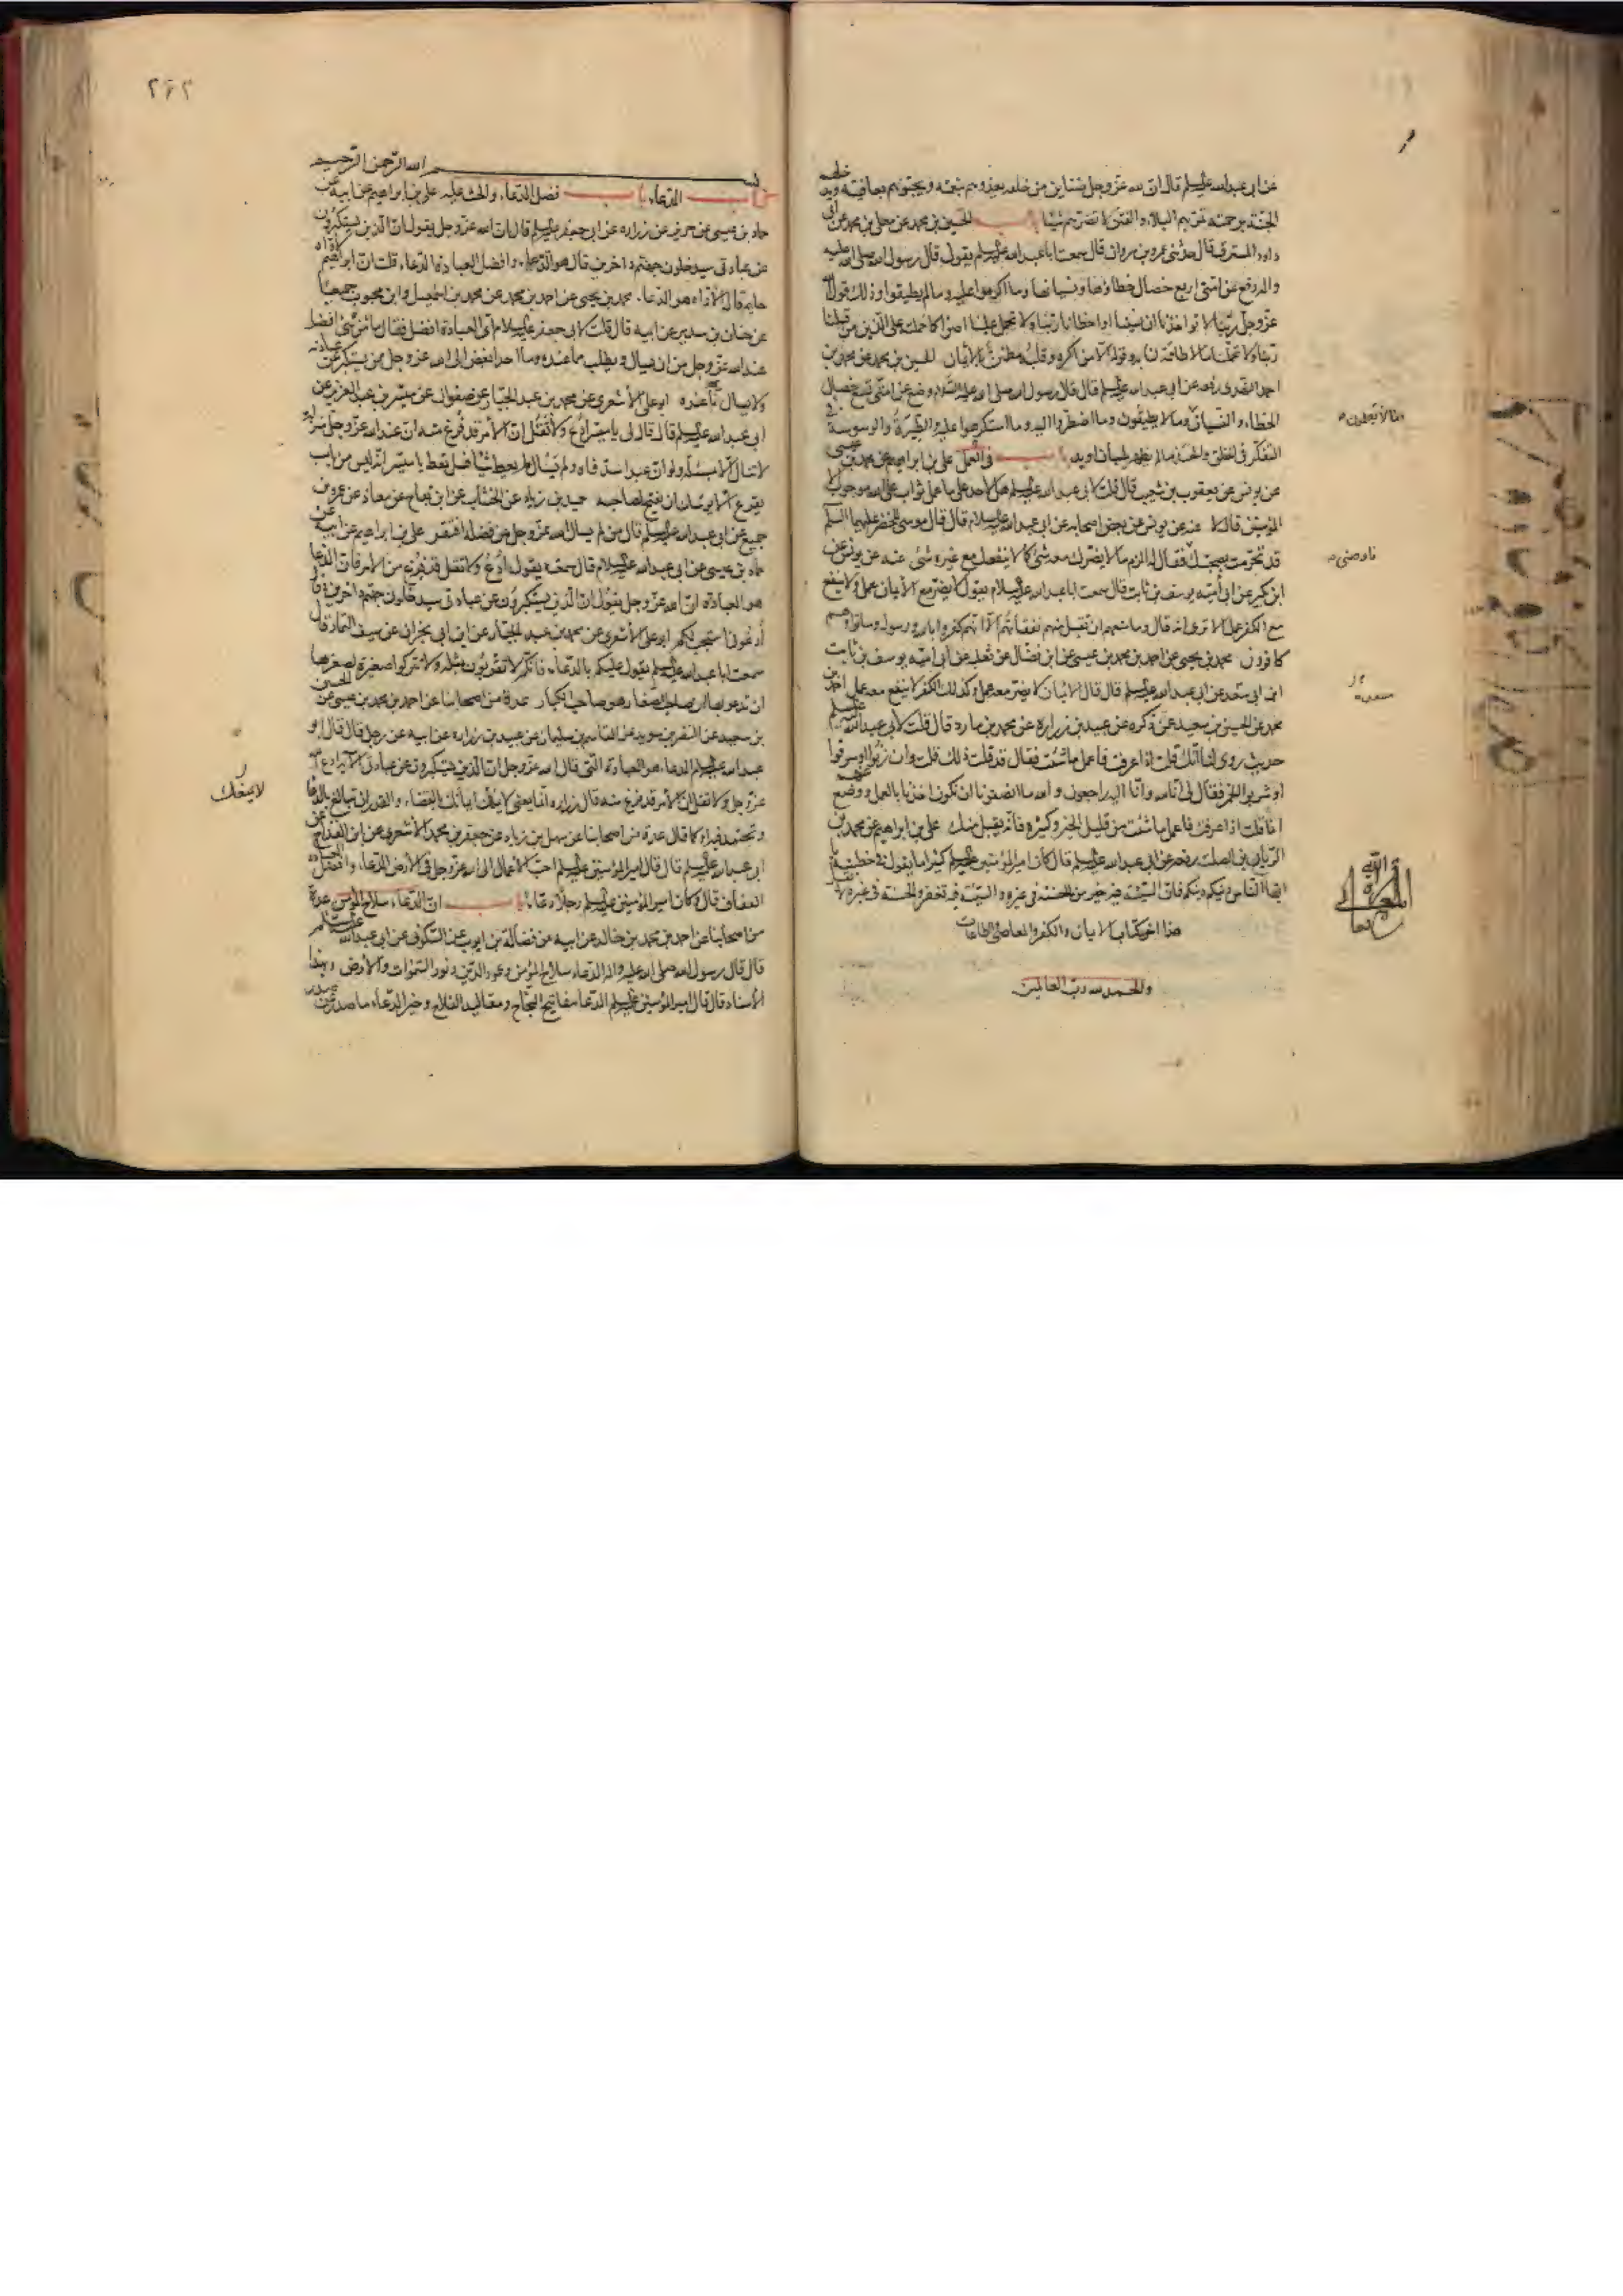 عن ابى عبدالله عليه السلم قال ان لله عز وجل ضناين من خلقه يغذوهم بنعمته ويحبوهم بعافيته ويدخلهم
الجنة برحمته تمر بهم البلايا والفتن لا تضرهم شيئا باب الحسين بن محمد عن معلى بن محمد عن ابى
داود المسترق قال حدثنى عمرو بن مروان قال سمعت ابا عبدالله عليه السلم يقول قال رسول الله صلى الله عليه
واله رفع عن امتى اربع خصال خطاؤها ونسيانها وما اكرهوا عليه وما لم يطيقوا وذلك قول الله
عز وجل ربنا لا تؤاخذنا ان نسينا او اخطانا ربنا ولا تحمل علينا اصرا كما حملته على الذين من قبلنا
ربنا ولا تحملنا ما لا طاقة لنا به وقوله الا من اكره وقلبه مطمئن بالايمان الحسين بن محمد عن محمد بن
احمد النهدى رفعه عن ابى عبدالله عليه السلم قال قال رسول الله صلى الله عليه وضع عن امتى تسع خصال
الخطاء والنسيان وما لا يطيقون وما اضطروا اليه وما استكرهوا عليه والطيرة والوسوسة فى
التفكر فى الخلق والحسد ما لم يظهر بلسان او يد باب فى العمل على بن ابراهيم عن محمد بن عيسى
عن يونس عن يعقوب بن شعيب قال قلت لابى عبدالله عليه السلم هل لاحد على ما عمل ثواب على الله موجب الا
المؤمنين قال لا عنه عن يونس عن بعض اصحابه عن ابى عبدالله عليه السلام قال قال موسى للخضر عليهما السلم
قد تحرمت بصحبتك فقال له الزم ما لا يضرك معه شئ كما لا ينفعك مع غيره شئ عنه عن يونس عن
ابن بكير عن ابى اميه يوسف بن ثابت قال سمعت ابا عبدالله عليه السلام يقول لا يضر مع الايمان عمل ولا ينفع
مع الكفر عمل الا ترى انه قال وما منعهم ان تقبل منهم نفقاتهم الا انهم كفروا بالله ورسوله وماتوا وهم
كافرون محمد بن يحيى عن احمد بن محمد بن عيسى عن ابن فضال عن ثعلبه عن ابى اميه يوسف بن ثابت
ابن ابى سعد عن ابى عبدالله عليه السلم قال قال الايمان لا يضر معه عمل وكذلك الكفر لا ينفع معه عمل احمد بن
محمد عن الحسين بن سعيد عمن ذكره عن عبيد بن زراره عن محمد بن مارد قال قلت لابى عبدالله عليه السلم
حديث روى لنا انك قلت اذا عرفت فاعمل ما شئت فقال قد قلت ذلك قلت وان زنوا او سرقوا
او شربوا الخمر فقال لى انا لله وانا اليه راجعون والله ما انصفونا ان نكون اخذنا بالعمل ووضع عنهم
انما قلت اذا عرفت فاعمل ما شئت من قليل الخير وكثيره فانه يقبل منك على بن ابراهيم عن محمد بن
الريان بن الصلت رفعه عن ابى عبدالله عليه السلم قال كان امير المؤمنين عليه السلم كثيرا ما يقول فى خطبته يا
ايها الناس دينكم دينكم فان السيئة فيه خير من الحسنة فى غيره والسيئة فيه تغفر والحسنة فى غيره لا تقبل
هذا اخر كتاب الايمان والكفر والمعاصى والطاعات
والحمد لله رب العالمين
فاوصنى
٢٦٢
بسم الله الرحمن الرحيم
كتاب الدعاء باب فضل الدعاء والحث عليه على بن ابراهيم عن ابيه عن
حماد بن عيسى عن حريز عن زراره عن ابى جعفر عليه السلم قال ان الله عز وجل يقول ان الذين يستكبرون
عن عبادتى سيدخلون جهنم داخرين قال هو الدعاء وافضل العبادة الدعاء قلت ان ابراهيم لاواه
حليم قال الاواه هو الدعاء محمد بن يحيى عن احمد بن محمد عن محمد بن اسمعيل وابن محبوب جميعا
عن حنان بن سدير عن ابيه قال قلت لابى جعفر عليه السلام اى العبادة افضل فقال ما من شئ افضل
عند الله عز وجل من ان يسال ويطلب مما عنده وما احد ابغض الى الله عز وجل ممن يستكبر عن عبادته
ولا يسال ما عنده ابو على الاشعرى عن محمد بن عبد الجبار عن صفوان عن ميسر بن عبد العزيز عن
ابى عبدالله عليه السلم قال قال لى يا ميسر ادع ولا تقل ان الامر قد فرغ منه ان عند الله عز وجل منزلة
لا تنال الا بمسئلة ولو ان عبدا سد فاه ولم يسال لم يعط شيئا فسل تعط يا ميسر انه ليس من باب
يقرع الا يوشك ان يفتح لصاحبه حميد بن زياد عن الخشاب عن ابن بقاح عن معاذ عن عمرو بن
جميع عن ابى عبدالله عليه السلم قال من لم يسال الله عز وجل من فضله افتقر على بن ابراهيم عن ابيه عن
حماد بن عيسى عن ابى عبدالله عليه السلام قال سمعته يقول ادع ولا تقل قد فرغ من الامر فان الدعا
هو العبادة ان الله عز وجل يقول ان الذين يستكبرون عن عبادتى سيدخلون جهنم داخرين وقال
ادعونى استجب لكم ابو على الاشعرى عن محمد بن عبد الجبار عن ابن ابى نجران عن سيف التمار قال
سمعت ابا عبدالله عليه السلم يقول عليكم بالدعاء فانكم لا تقربون بمثله ولا تتركوا صغيرة لصغرها
ان تدعوا بها ان صاحب الصغار هو صاحب الكبار عدة من اصحابنا عن احمد بن محمد بن عيسى عن الحسين
بن سعيد عن النضر بن سويد عن القاسم بن سليمان عن عبيد بن زراره عن ابيه عن رجل قال قال ابو
عبدالله عليه السلم الدعاء هو العبادة التى قال الله عز وجل ان الذين يستكبرون عن عبادتى الاية ادع الله
عز وجل ولا تقل ان الامر قد فرغ منه قال زراره انما يعنى لا يمنعك ايمانك بالقضاء والقدر ان تبالغ بالدعا
وتجتهد فيه او كما قال عدة من اصحابنا عن سهل بن زياد عن جعفر بن محمد الاشعرى عن ابن القداح عن
ابى عبدالله عليه السلم قال قال امير المؤمنين عليه السلم احب الاعمال الى الله عز وجل فى الارض الدعاء وافضل العبادة
العفاف قال وكان امير المؤمنين عليه السلم رجلا دعاء باب ان الدعاء سلاح المؤمن عدة
من اصحابنا عن احمد بن محمد بن خالد عن ابيه عن فضالة بن ايوب عن السكونى عن ابى عبدالله عليه السلم
قال قال رسول الله صلى الله عليه واله الدعاء سلاح المؤمن وعمود الدين ونور السموات والارض وبهذا
الاسناد قال قال امير المؤمنين عليه السلم الدعا مفاتيح النجاح ومقاليد الفلاح وخير الدعاء ما صدر عن صدر
لا يمنعك